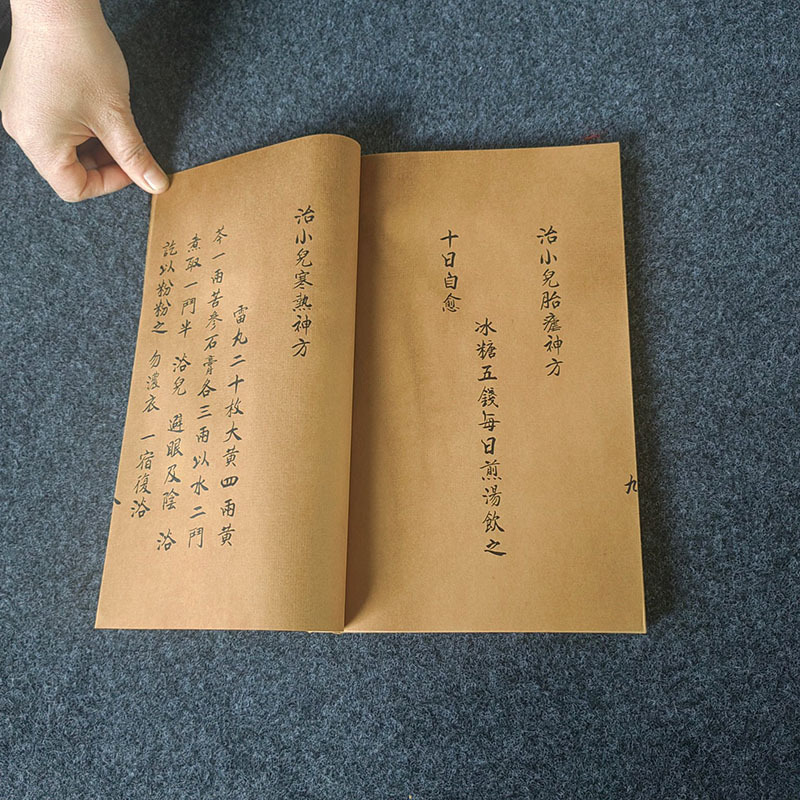 治小兒寒熱神方
雷丸二十枚大黃四兩黃
芩一兩苦參石膏各三兩以水二鬥
煮取一鬥半 浴兒 避眼及陰 浴
訖以粉粉之 勿濃衣 一宿復浴
治小兒胎瘧神方
冰糖五錢每日煎湯飲之
十日自愈
九